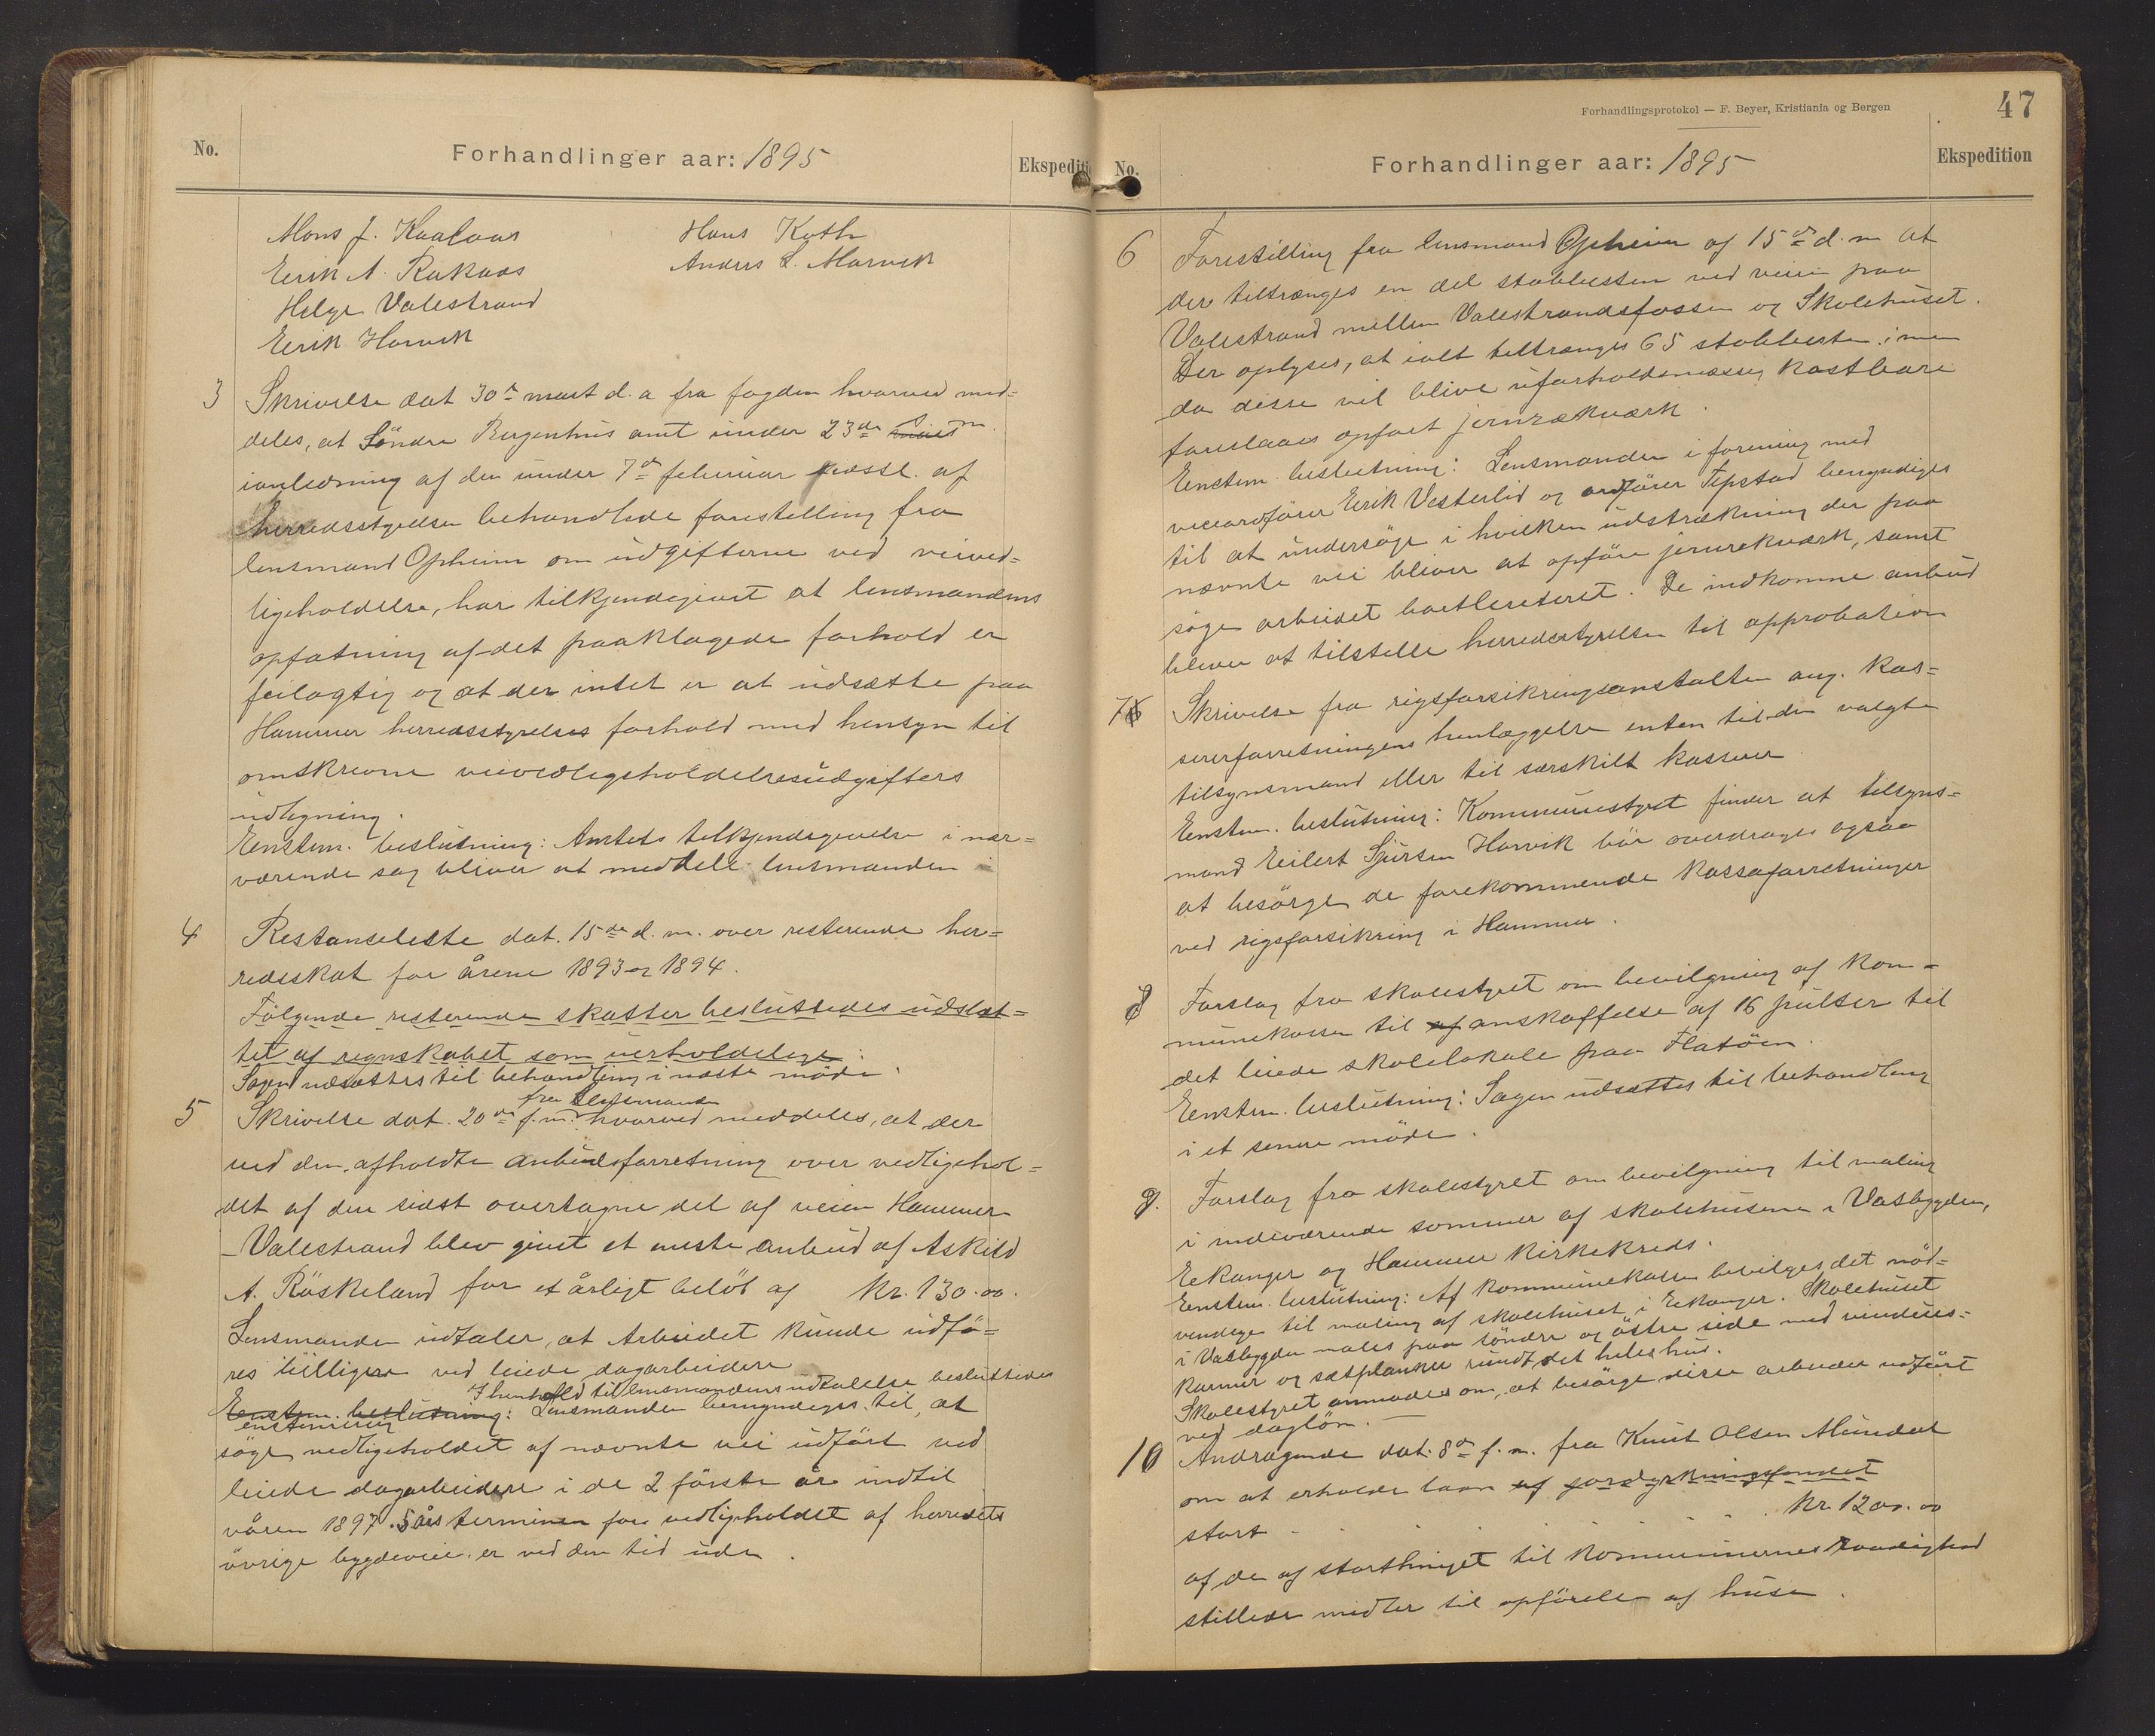 No.
Forhandlinger aar: 1895
Ekspediti
Mons J. Kaalaas
Hans Kath
Eerik A. Rakaas
Anders L. Marvik
Helge Valestrand
Eerik Horvik
3 Skrivelse dat 30te mart d. a fra fogden hvorved med=
deles, at Söndre Bergenhus amt under 23de s. m.
ianledning af den under 7de februar sidstl. af
herredsstyrelsen behandlede forestilling fra
lensmand Opheim om udgifterne ved veived=
ligeholdelse, har tilkjendegivet at lensmandens
opfatning af det paaklagede forhold er
feilagtig og at der intet er at udsætte paa
Hammer herredsstyrelses forhold med hensyn til
omskrevne veivedligeholdelsesudgifters
udligning.
Eenstem. beslutning: Amtets tilkjendegivelse i nær=
værende sag bliver at meddele lensmanden
4 Restanseliste dat. 15de d. m. over resterende her=
redsskat for årene 1893 og 1894.
Fölgende resterende skatter besluttedes udslet=
tet af regnskabet som uerholdelige:
Sagen udsættes til behandling i næste möde.
fra lensmanden
5 Skrivelse dat. 20de f. m. hvorved meddeles, at der
ved den afholdte anbudsforretning over vedligehol=
det af den sidst overtagne del af veien Hammer
-Valestrand blev givet et meste anbud af Askild
A. Röskeland for et årligt belöb af kr. 130.00.
Lensmanden udtaler, at Arbeidet kunde udfö=
res billigere ved leiede dagarbeidere
I henhold til lensmandens udtalelse besluttedes
Eenstem. beslutning: Lensmanden bemyndiges til, at
enstemmig
söge vedligeholdet af nævnte vei udfört ved
leiede dagarbeidere i de 2 förste år indtil
våren 1897. 5 års terminen for vedligeholdet af herredets
övrige bygdeveie er ved den tid ude.
Forhandlingsprotokol — F. Beyer, Kristiania og Bergen
47
No.
Forhandlinger aar: 1895
Ekspedition
6 Forestilling fra lensmand Opheim af 15de d. m at
der tiltrænges en del stabbesten ved veien paa
Valestrand mellem Valestrandsfossen og Skolehuset.
Der oplyses, at ialt tiltrænges 65 stabbesten; men
da disse vil blive uforholdsmæssig kostbare
foreslaaes opfört jernrækværk.
Eenstem. beslutning: Lensmanden i forening med
viceordförer Eerik Vesterlid og ordförer Tepstad bemyndiges
til at undersöge i hvilken udstrækning der paa
nævnte vei bliver at opföre jernrekværk, samt
söge arbeidet bortliciteret. De indkomne anbud
bliver at tilstille herredsstyrelsen til approbation
7 Skrivelse fra rigsforsikringsanstalten ang. kas=
sererforretningens henlæggelse enten til den valgte
tilsynsmand eller til særskilt kasserer
Eenstem. beslutning: Kommunestyret finder at tilsyns=
mand Eilert Sjursen Horvik bör overdrages ogsaa
at besörge de forekommende kassaforretninger
ved rigsforsikring i Hammer.
8 Forslag fra skolestyret om bevilgning af kom=
munekassen til af anskaffelse af 16 pulter til
det leiede skolelokale paa Flatöen.
Eenstem. beslutning: Sagen udsættes til behandling
i et senere möde.
9. Forslag fra skolestyret om bevilgning til maling
i indeværende sommer af skolehusene i Vasbygden,
Eekanger og Hammer kirkekreds.
Eenstem. beslutning: Af kommunekassen bevilges det nöd=
vendige til maling af skolehuset i Eekanger. Skolehuset
i Vasbygden males paa söndre og östre side med vindues=
karmer og sætplanker rundt det hele hus.
Skolestyret anmodes om, at besörge disse arbeider udfört
ved daglön. —
10 Andragende dat. 8de f. m. fra Knut Olsen Mundal
om at erholde laan af jordyrkningsfondet
stort . . . . . kr. 1200.00
af de af storthinget til kommunernes raadighed
stillede midler til opförelse af huse.